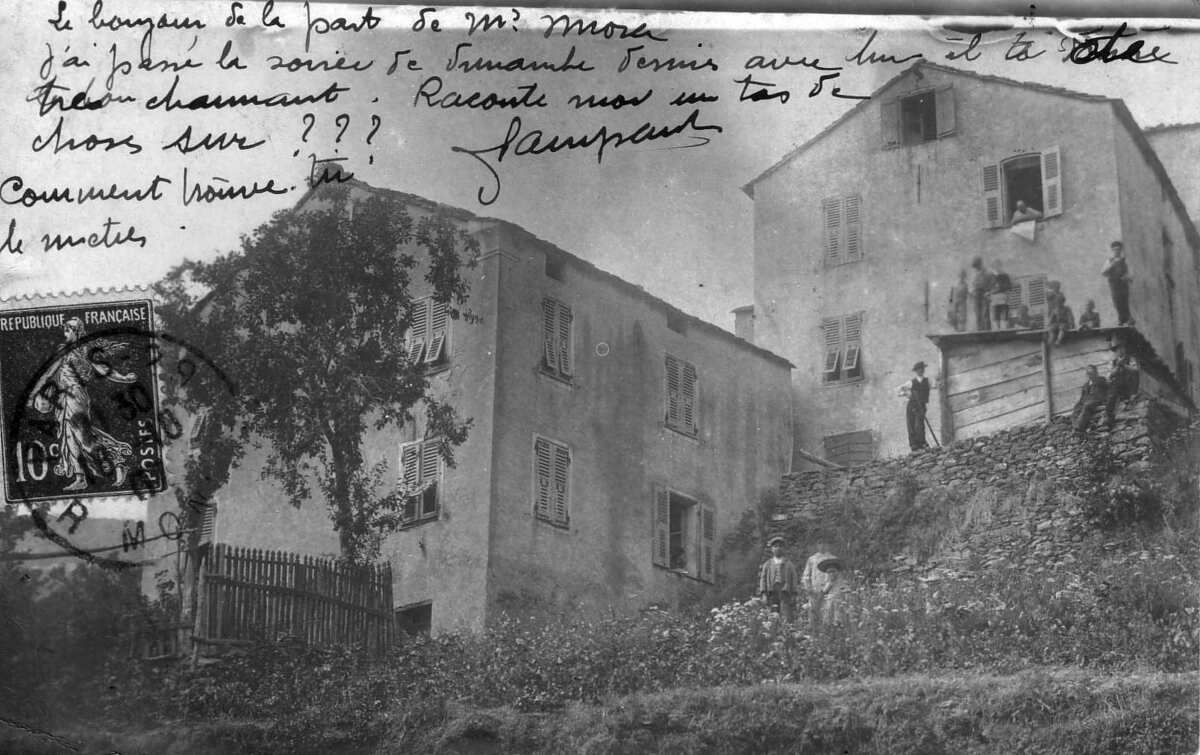 Le bonjour de la part de Mr. Mora
j'ai passé la soirée de dimanche dernier avec lui il ta
chaumant. Raconte moi un tas de
choses sur ???
Comment trouve. tu
le
REPUBLIQUE FRANÇAISE
10c
POSTES
PARIS